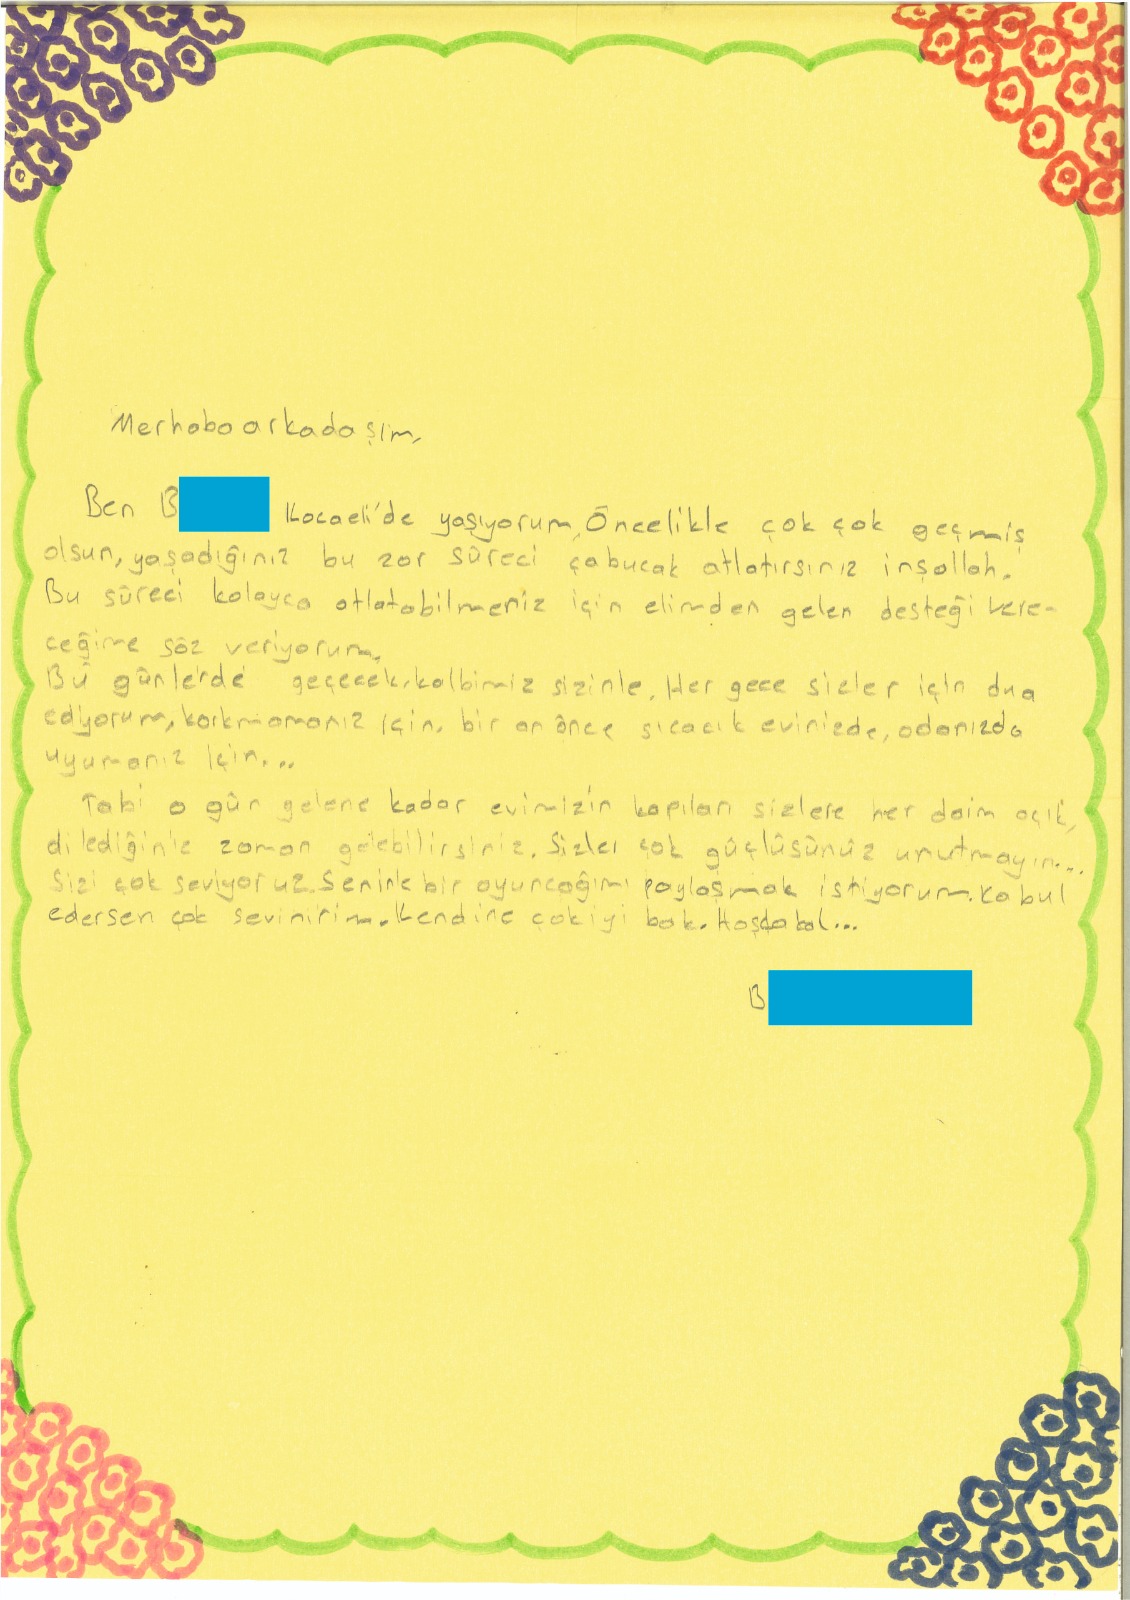 Merhaba arkadaşım,
Ben B Kocaeli'de yaşıyorum, Öncelikle çok çok geçmiş
olsun, yaşadığınız bu zor süreci çabucak atlatırsınız inşallah.
Bu süreci kolayca atlatabilmeniz için elimden gelen desteği vere-
ceğime söz veriyorum.
Bu günlerde geçecek, kalbimiz sizinle. Her gece sizler için dua
ediyorum, korkmamanız için, bir an önce sıcacık evinizde, odanızda
uyumanız için...
Tabi o gün gelene kadar evimizin kapıları sizlere her daim açık,
dilediğiniz zaman gelebilirsiniz. Sizler çok güçlüsünüz unutmayın...
Sizi çok seviyoruz. Seninle bir oyuncağımı paylaşmak istiyorum. Kabul
edersen çok sevinirim. Kendine çok iyi bak. Hoşçakal...
B